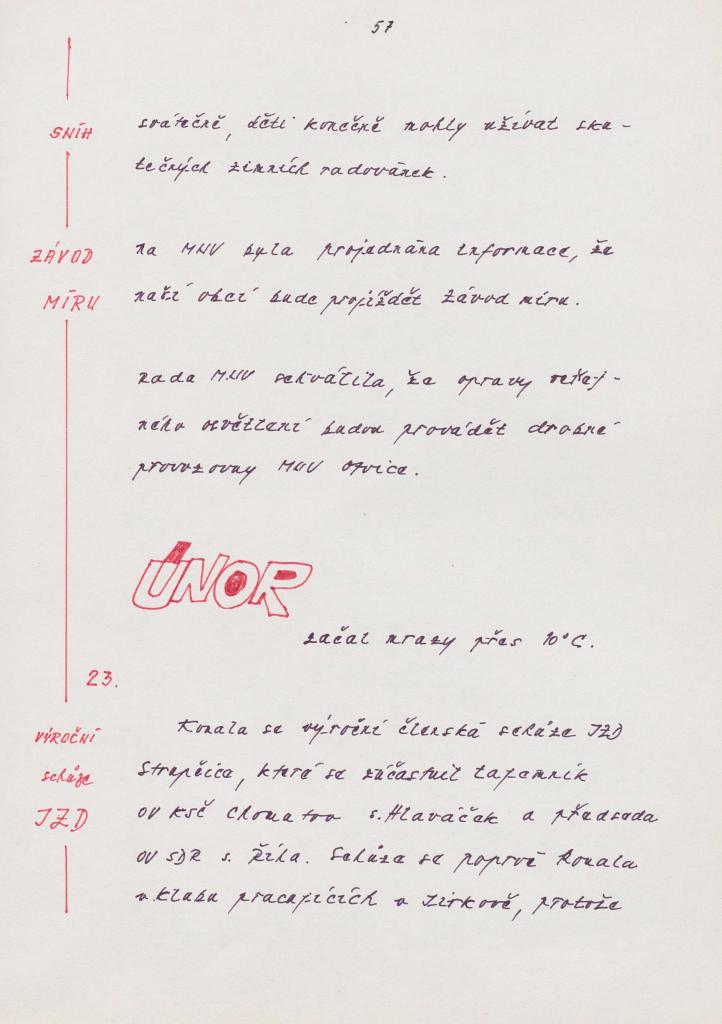 57
SNÍH
svátečně, děti konečně mohly užívat sku-
tečných zimních radovánek.
ZÁVOD
na MNV byla projednána informace, že
MÍRU
naší obcí bude projíždět Závod míru.
rada MNV schválila, že opravy veřej-
ného osvětlení budou provádět drobné
provozovny MNV Otvice.
ÚNOR
začal mrazy přes 10°C.
23.
VÝROČNÍ
Konala se výroční členská schůze JZD
schůze
Strupčice, které se zúčastnil tajemník
JZD
OV KSČ Chomutov s. Hlaváček a předseda
OV SDR s. Říha. Schůze se poprvé konala
v Klubu pracujících v Jirkově, protože